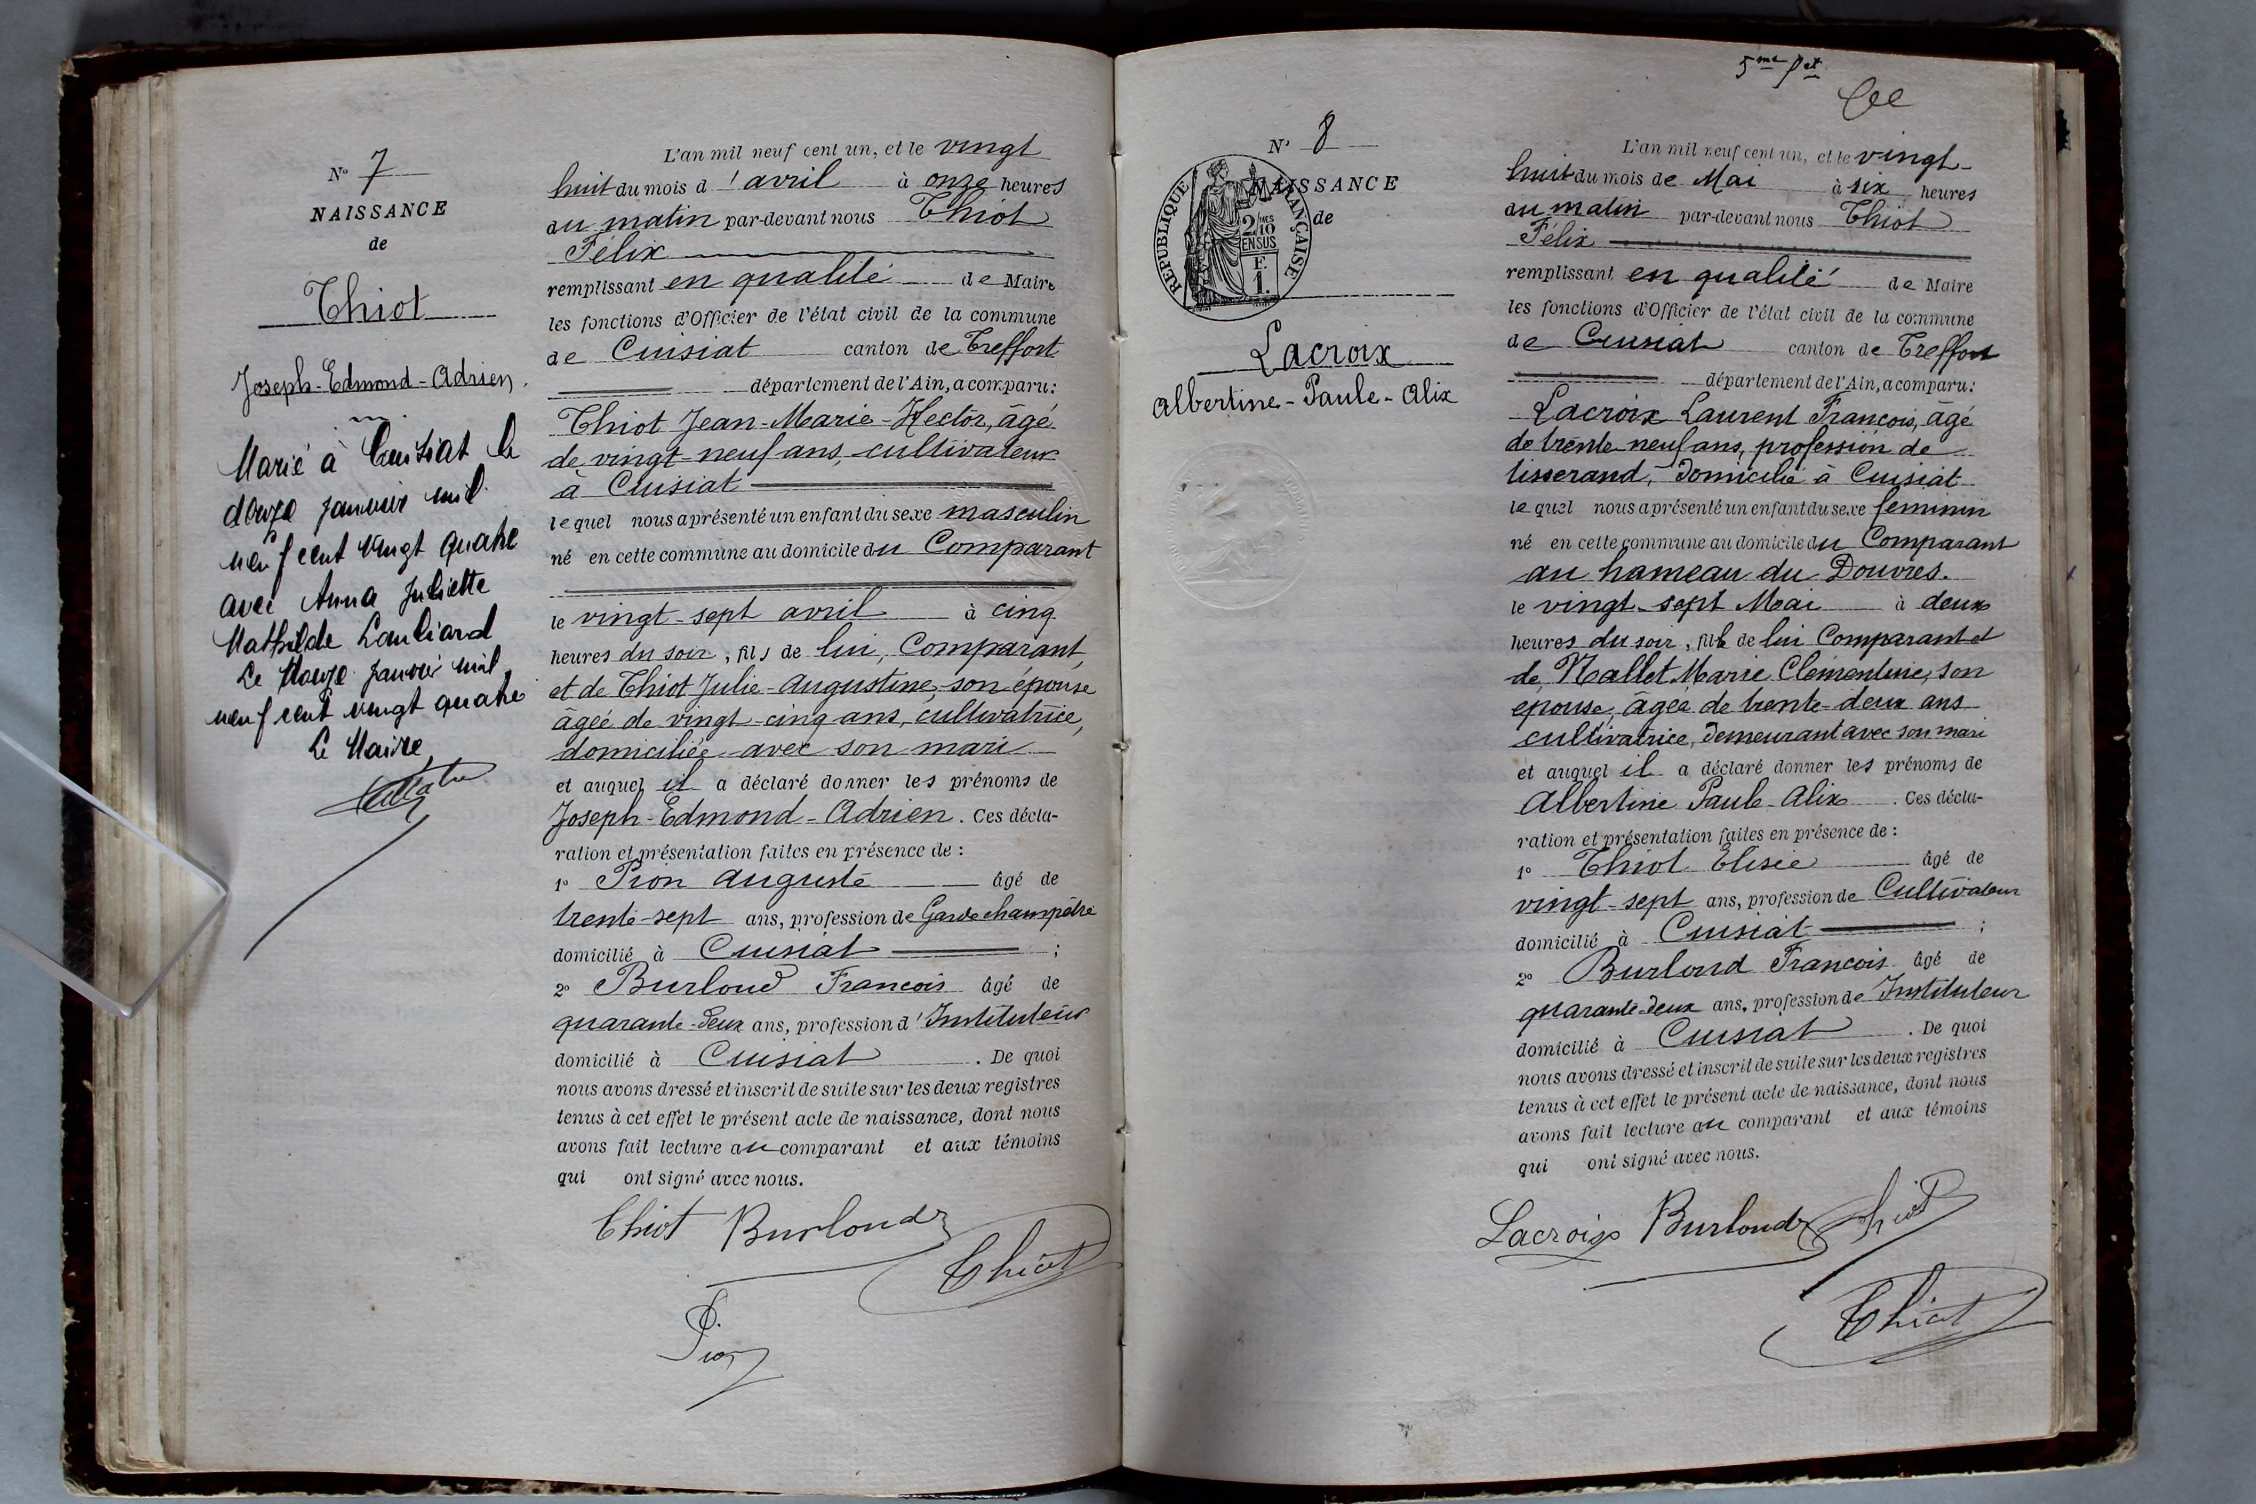 Nº 7
NAISSANCE
de
Thiot
Joseph-Edmond-Adrien.
Marié à Cuisiat le
douze janvier mil
neuf cent vingt quatre
avec Anna Juliette
Mathilde
Le douze janvier mil
neuf cent vingt quatre
Le Maire
L'an mil neuf cent un, et le vingt
huit du mois d'avril à onze heures
du matin par-devant nous Thiot
Félix
remplissant en qualité de Maire
les fonctions d'Officier de l'état civil de la commune
de Cuisiat canton de Treffort
département de l'Ain, a comparu:
Thiot Jean-Marie-Hector, âgé
de vingt-neuf ans, cultivateur
à Cuisiat
lequel nous a présenté un enfant du sexe masculin
né en cette commune au domicile du Comparant
le vingt-sept avril à cinq
heures du soir, fils de lui, Comparant,
et de Thiot Julie-Augustine, son épouse
âgée de vingt-cinq ans, cultivatrice,
domiciliée avec son mari
et auquel il a déclaré donner les prénoms de
Joseph-Edmond-Adrien. Ces décla-
ration et présentation faites en présence de :
1º Pion Auguste âgé de
trente-sept ans, profession de Garde champêtre
domicilié à Cuisiat ;
2º Burloud François âgé de
quarante-deux ans, profession d'Instituteur
domicilié à Cuisiat . De quoi
nous avons dressé et inscrit de suite sur les deux registres
tenus à cet effet le présent acte de naissance, dont nous
avons fait lecture au comparant et aux témoins
qui ont signé avec nous.
Thiot Burloud
Thiot
Pion
5me
Nº 8
NAISSANCE
de
RÉPUBLIQUE FRANÇAISE
2/10
EN SUS
F.
1.
Lacroix
Albertine-Paule-Alix
L'an mil neuf cent un, et le vingt-
huit du mois de Mai à six heures
du matin par-devant nous Thiot
Félix
remplissant en qualité de Maire
les fonctions d'Officier de l'état civil de la commune
de Cuisiat canton de Treffort
département de l'Ain, a comparu:
Lacroix Laurent François, âgé
de trente-neuf ans, profession de
tisserand, domicilié à Cuisiat
lequel nous a présenté un enfant du sexe feminin
né en cette commune au domicile du Comparant
au hameau du Douvres.
le vingt-sept Mai à deux
heures du soir, fille de lui Comparant et
de Nallet Marie Clementine, son
epouse, âgée de trente-deux ans
cultivatrice, demeurant avec son mari
et auquel il a déclaré donner les prénoms de
Albertine Paule-Alix . Ces décla-
ration et présentation faites en présence de :
1º Thiot Elisée âgé de
vingt-sept ans, profession de Cultivateur
domicilié à Cuisiat ;
2º Burloud François âgé de
quarante-deux ans, profession de Instituteur
domicilié à Cuisiat . De quoi
nous avons dressé et inscrit de suite sur les deux registres
tenus à cet effet le présent acte de naissance, dont nous
avons fait lecture au comparant et aux témoins
qui ont signé avec nous.
Lacroix Burloud Thiot
Thiot